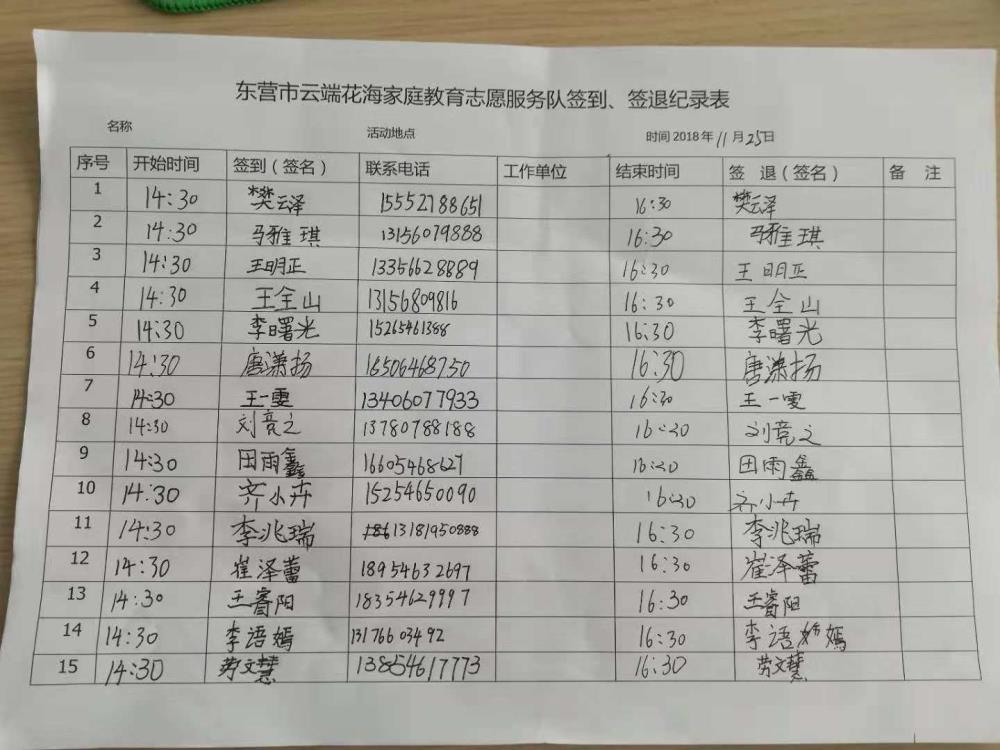 东营市云端花海家庭教育志愿服务队签到、签退纪录表
名称 活动地点 时间 2018 年 11 月 25 日
序号 开始时间 签到（签名） 联系电话 工作单位 结束时间 签 退（签名） 备 注
1 14:30 樊云泽 15552788651 16:30 樊云泽
2 14:30 马雅琪 13156079888 16:30 马雅琪
3 14:30 王明正 13356628889 16:30 王明正
4 14:30 王全山 13156809816 16:30 王全山
5 14:30 李曙光 15265461388 16:30 李曙光
6 14:30 唐潇扬 16506468750 16:30 唐潇扬
7 14:30 王一雯 13406077933 16:30 王一雯
8 14:30 刘竞之 13780788188 16:30 刘竞之
9 14:30 田雨鑫 16605468627 16:30 田雨鑫
10 14:30 齐小卉 15254650090 16:30 齐小卉
11 14:30 李兆瑞 13181950888 16:30 李兆瑞
12 14:30 崔泽蕾 18954632697 16:30 崔泽蕾
13 14:30 王睿阳 18354629997 16:30 王睿阳
14 14:30 李语嫣 13176603492 16:30 李语嫣
15 14:30 劳文慧 13854617773 16:30 劳文慧